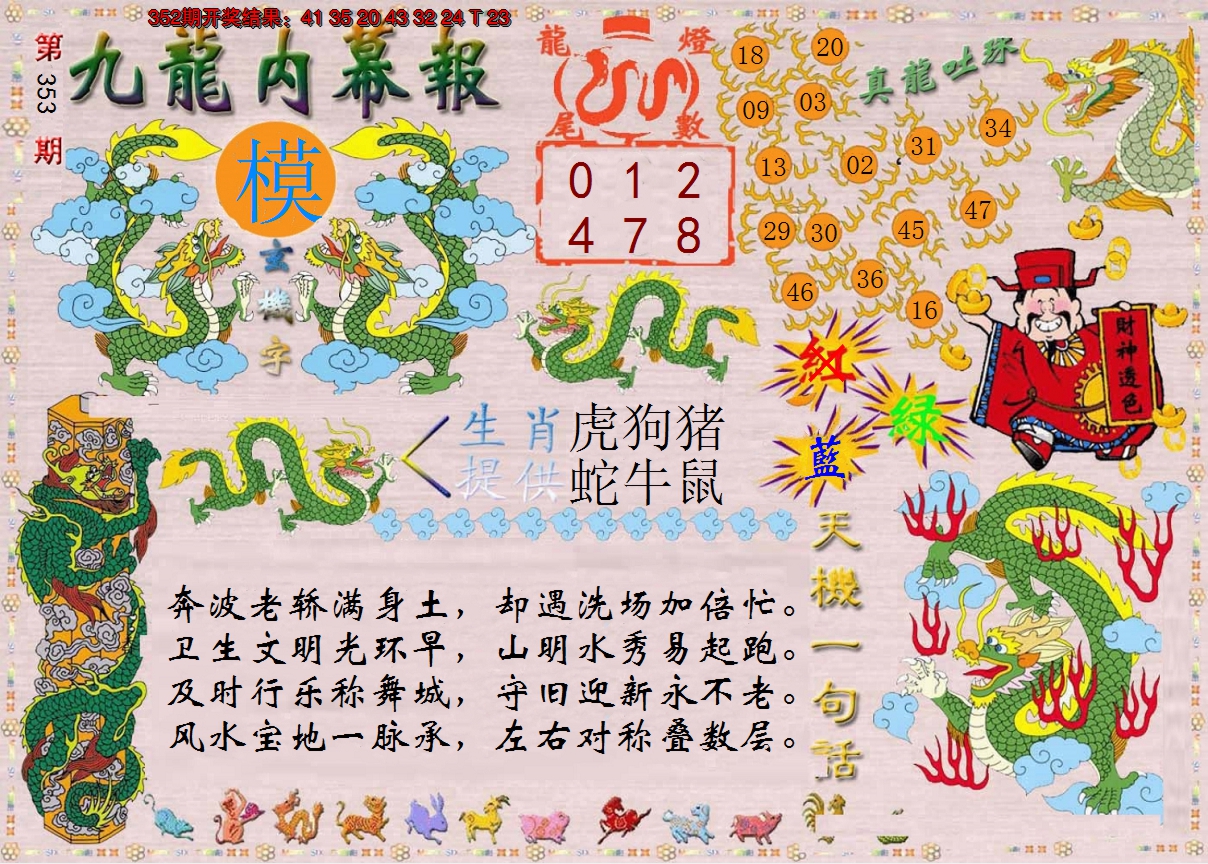 352期开奖结果：41 35 20 43 32 24 T 23
第353期
九龍内幕報
模
玄機字
龍燈
尾數
0 1 2
4 7 8
真龍吐珠
18 20
09 03
31 34
13 02
47
29 30 45
46 36
16
財神透色
紅
綠
藍
生肖 虎狗猪
提供 蛇牛鼠
天機一句話
奔波老轿满身土，却遇洗场加倍忙。
卫生文明光环早，山明水秀易起跑。
及时行乐称舞城，守旧迎新永不老。
风水宝地一脉承，左右对称叠数层。